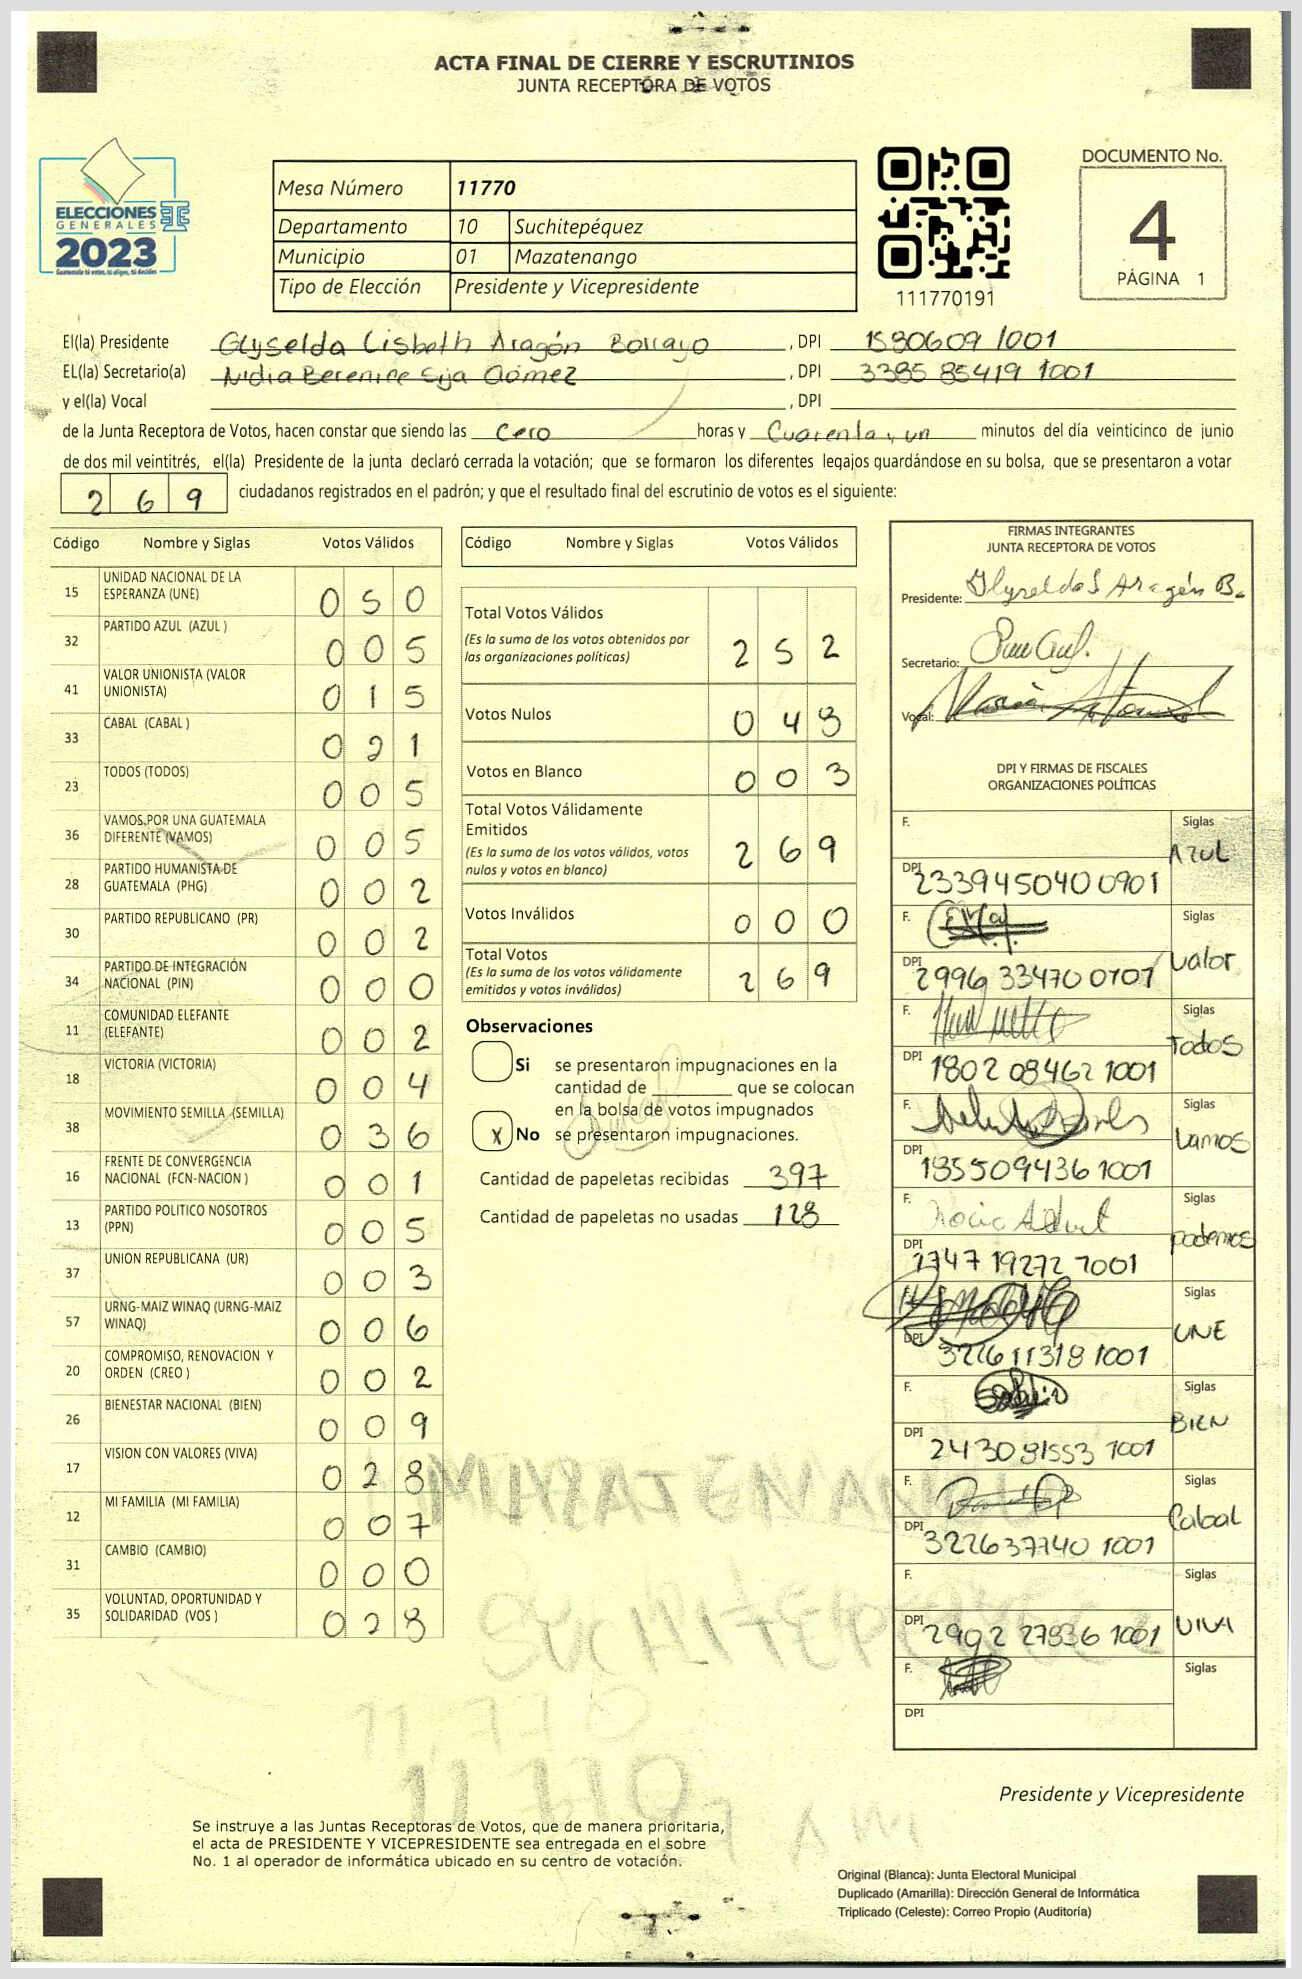 ACTA FINAL DE CIERRE Y ESCRUTINIOS
JUNTA RECEPTORA DE VOTOS
ELECCIONES
GENERALES
2023
Guatemala tú votes, tú eliges, tú decides
Mesa Número 11770
Departamento 10 Suchitepéquez
Municipio 01 Mazatenango
Tipo de Elección Presidente y Vicepresidente
111770191
DOCUMENTO No.
4
PÁGINA 1
El(la) Presidente Glyselda Lisbeth Aragón Borrayo , DPI
EL(la) Secretario(a) Nidia Berenice Gómez , DPI 3385 85419 1001
y el(la) Vocal , DPI
de la Junta Receptora de Votos, hacen constar que siendo las Cero horas y Cuarenta y un minutos del día veinticinco de junio
de dos mil veintitrés, el(la) Presidente de la junta declaró cerrada la votación; que se formaron los diferentes legajos guardándose en su bolsa, que se presentaron a votar
2 6 9 ciudadanos registrados en el padrón; y que el resultado final del escrutinio de votos es el siguiente:
Código Nombre y Siglas Votos Válidos
15 UNIDAD NACIONAL DE LA ESPERANZA (UNE) 0 5 0
32 PARTIDO AZUL (AZUL ) 0 0 5
41 VALOR UNIONISTA (VALOR UNIONISTA) 0 1 5
33 CABAL (CABAL ) 0 2 1
23 TODOS (TODOS) 0 0 5
36 VAMOS POR UNA GUATEMALA DIFERENTE (VAMOS) 0 0 5
28 PARTIDO HUMANISTA DE GUATEMALA (PHG) 0 0 2
30 PARTIDO REPUBLICANO (PR) 0 0 2
34 PARTIDO DE INTEGRACIÓN NACIONAL (PIN) 0 0 0
11 COMUNIDAD ELEFANTE (ELEFANTE) 0 0 2
18 VICTORIA (VICTORIA) 0 0 4
38 MOVIMIENTO SEMILLA (SEMILLA) 0 3 6
16 FRENTE DE CONVERGENCIA NACIONAL (FCN-NACION ) 0 0 1
13 PARTIDO POLITICO NOSOTROS (PPN) 0 0 5
37 UNION REPUBLICANA (UR) 0 0 3
57 URNG-MAIZ WINAQ (URNG-MAIZ WINAQ) 0 0 6
20 COMPROMISO, RENOVACION Y ORDEN (CREO ) 0 0 2
26 BIENESTAR NACIONAL (BIEN) 0 0 9
17 VISION CON VALORES (VIVA) 0 2 8
12 MI FAMILIA (MI FAMILIA) 0 0 7
31 CAMBIO (CAMBIO) 0 0 0
35 VOLUNTAD, OPORTUNIDAD Y SOLIDARIDAD (VOS ) 0 2 8
Código Nombre y Siglas Votos Válidos
Total Votos Válidos 2 5 2
(Es la suma de los votos obtenidos por
las organizaciones políticas)
Votos Nulos 0 4
Votos en Blanco 0 0 3
Total Votos Válidamente
Emitidos 2 6 9
(Es la suma de los votos válidos, votos
nulos y votos en blanco)
Votos Inválidos 0 0 0
Total Votos 2 6 9
(Es la suma de los votos válidamente
emitidos y votos inválidos)
Observaciones
Si se presentaron impugnaciones en la
cantidad de que se colocan
en la bolsa de votos impugnados
X No se presentaron impugnaciones.
Cantidad de papeletas recibidas 397
Cantidad de papeletas no usadas 128
FIRMAS INTEGRANTES
JUNTA RECEPTORA DE VOTOS
Presidente: Glyselda Aragón B.
Secretario:
Vocal:
DPI Y FIRMAS DE FISCALES
ORGANIZACIONES POLÍTICAS
F. Siglas AZUL
DPI 2339450400901
F. Siglas Valor
DPI 2996 33470 0101
F. Siglas Todos
DPI 1802 08462 1001
F. Siglas Vamos
DPI 185509436 1001
F. Rocio Siglas podemos
DPI 1747 19272 1001
F. Siglas UNE
DPI 322611318 1001
F. Siglas BIEN
DPI 2430 1001
F. Siglas Cabal
DPI 322637740 1001
F. Siglas VIVA
DPI 2902 27836 1001
F. Siglas
DPI
Presidente y Vicepresidente
Se instruye a las Juntas Receptoras de Votos, que de manera prioritaria,
el acta de PRESIDENTE Y VICEPRESIDENTE sea entregada en el sobre
No. 1 al operador de informática ubicado en su centro de votación.
Original (Blanca): Junta Electoral Municipal
Duplicado (Amarilla): Dirección General de Informática
Triplicado (Celeste): Correo Propio (Auditoría)